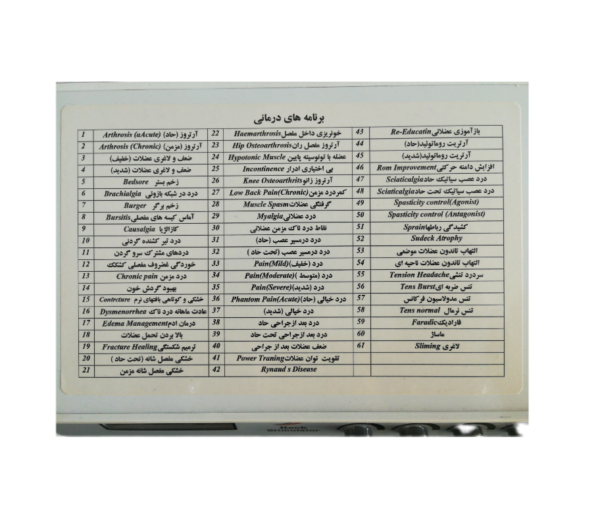 برنامه های درمانی
1 Arthrosis (aAcute) آرتروز (حاد)
2 Arthrosis (Chronic) آرتروز (مزمن)
3 ضعف و لاغری عضلات (خفیف)
4 ضعف و لاغری عضلات (شدید)
5 Bedsore زخم بستر
6 Brachialgia درد در شبکه بازوئی
7 Burger زخم برگر
8 Bursitis آماس کیسه های مفصلی
9 Causalgia کازالژیا
10 درد تیر کشنده گردنی
11 دردهای مشترک سرو گردن
12 خوردگی غضروف مفصلی کشکک
13 Chronic pain درد مزمن
14 بهبود گردش خون
15 Contrcture خشکی و کوتاهی بافتهای نرم
16 Dysmenorrhea عادت ماهانه درد ناک
17 Edema Management درمان ادم
18 بالا بردن تحمل عضلات
19 Fracture Healing ترمیم شکستگی
20 خشکی مفصل شانه (تحت حاد)
21 خشکی مفصل شانه مزمن
22 Haemarthrosis خونریزی داخل مفصل
23 Hip Osteoarthrosis آرتروز مفصل ران
24 Hypotonic Muscle عضله با تونوسیته پایین
25 Incontinence بی اختیاری ادرار
26 Knee Osteoarthrits آرتروز زانو
27 Low Back Pain(Chronic) کمردرد مزمن
28 Muscle Spasm گرفتگی عضلات
29 Myalgia درد عضلانی
30 نقاط درد ناک مزمن عضلانی
31 درد درمسیر عصب (حاد)
32 درد درمسیر عصب (تحت حاد)
33 Pain(Mild) درد (خفیف)
34 Pain(Moderate) درد (متوسط)
35 Pain(Severe) درد (شدید)
36 Phantom Pain(Acute) درد خیالی (حاد)
37 درد خیالی (شدید)
38 درد بعد ازجراحی حاد
39 درد بعد ازجراحی تحت حاد
40 ضعف عضلات بعد از جراحی
41 Power Traning تقویت توان عضلات
42 Rynaud s Disease
43 Re-Educatin بازآموزی عضلانی
44 آرتریت روماتوئید(حاد)
45 آرتریت روماتوئید(شدید)
46 Rom Improvement افزایش دامنه حرکتی
47 Sciaticalgia درد عصب سیاتیک حاد
48 Sciaticalgia درد عصب سیاتیک تحت حاد
49 Spasticity control(Agonist)
50 Spasticity control (Antagonist)
51 Sprain کشیدگی رباطها
52 Sudeck Atrophy
53 التهاب تاندون عضلات موضعی
54 التهاب تاندون عضلات ناحیه ای
55 Tension Headache سردرد تنشی
56 Tens Burst تنس ضربه ای
57 تنس مدولاسیون فرکانس
58 Tens normal تنس نرمال
59 Faradic فارادیک
60 ماساژ
61 Sliming لاغری